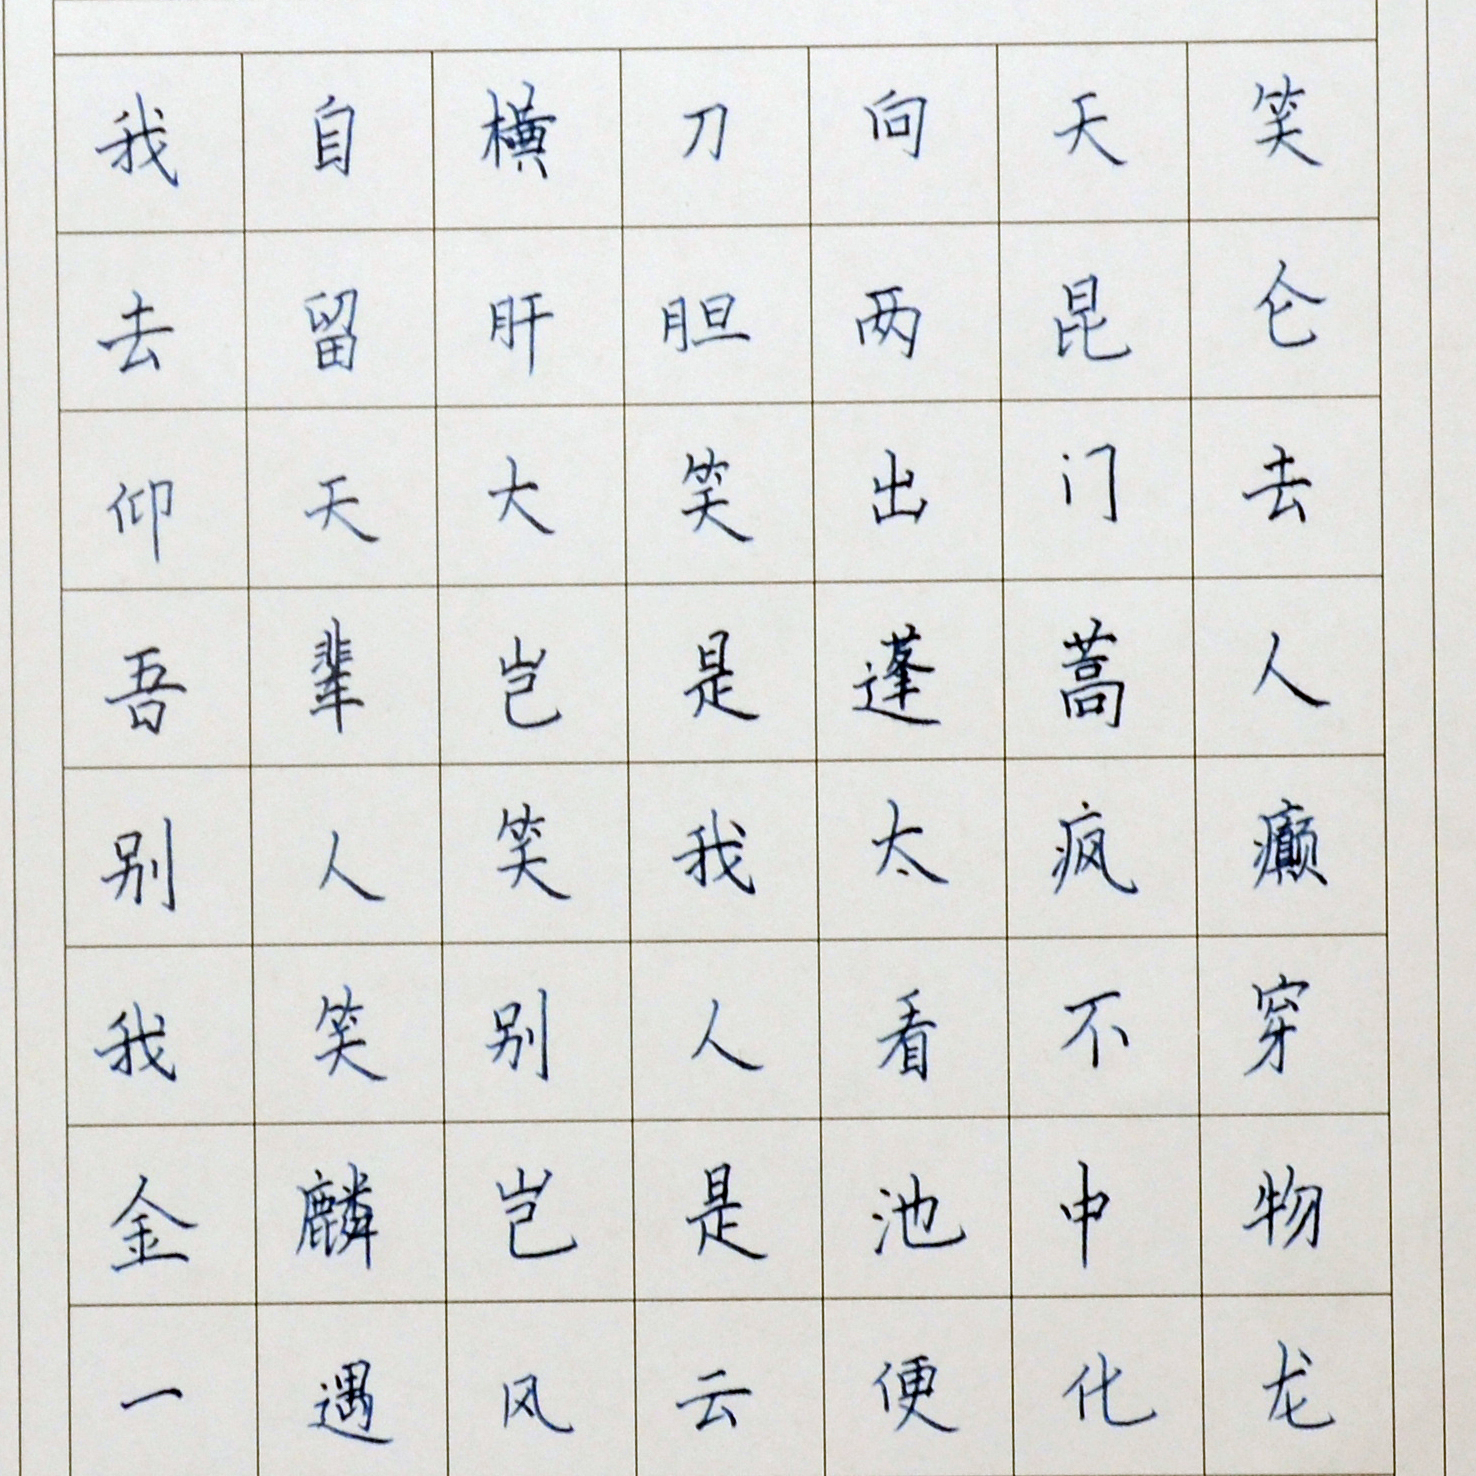 我自横刀向天笑
去留肝胆两昆仑
仰天大笑出门去
吾辈岂是蓬蒿人
别人笑我太疯癫
我笑别人看不穿
金麟岂是池中物
一遇风云便化龙